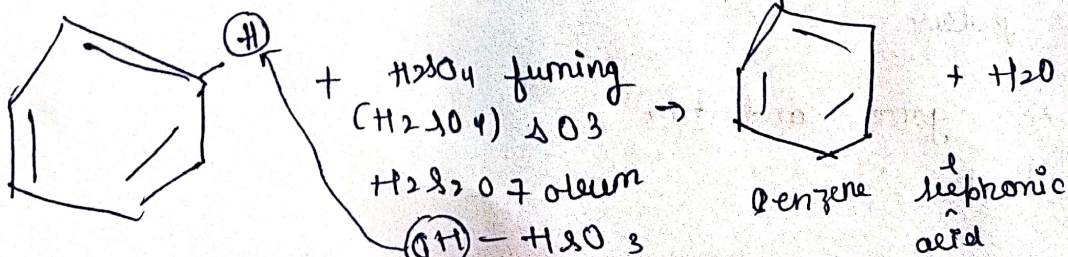 H
+ H2SO4 fuming
(H2SO4) SO3 →
H2S2O7 oleum
OH - HSO3
+ H2O
Benzene sulphonic
acid